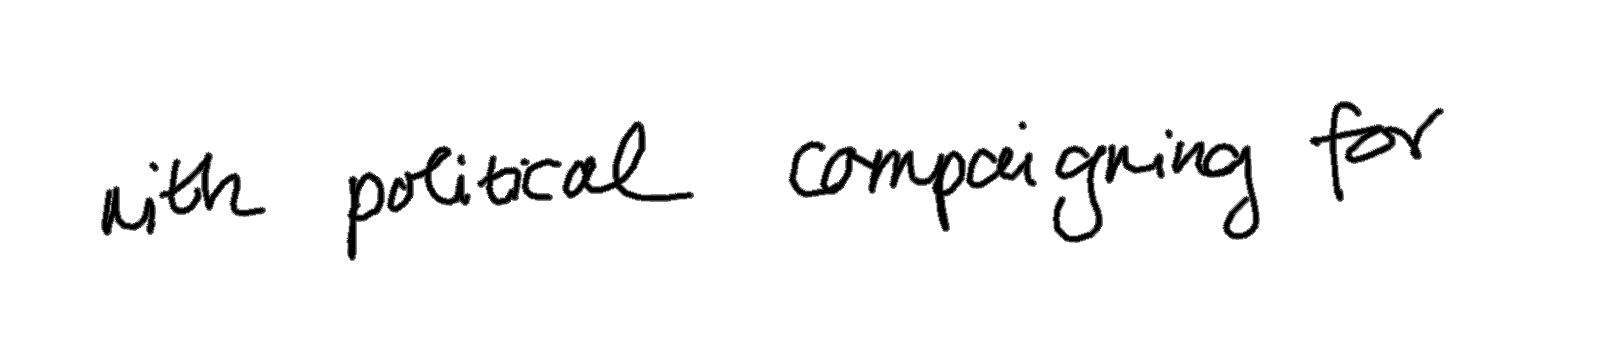 with political campaigning for